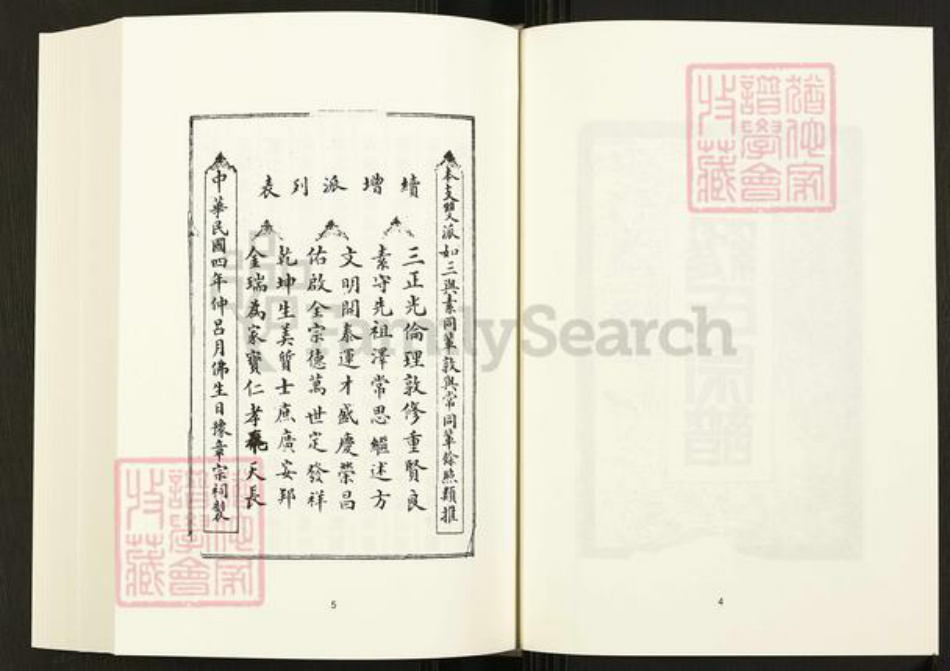 猶他家譜學會收藏
本支雙派如三與素同輩敦與常同輩餘照類推
續增派列表
三正光倫理敦修重賢良
素守先祖澤常思繼述方
文明開泰運才盛慶榮昌
佑啟全宗德萬世定發祥
乾坤生美質士庶廣安邦
金瑞為家寶仁孝天長
中華民國四年仲呂月佛生日豫章宗祠製
猶他家譜學會收藏
FamilySearch
5
4